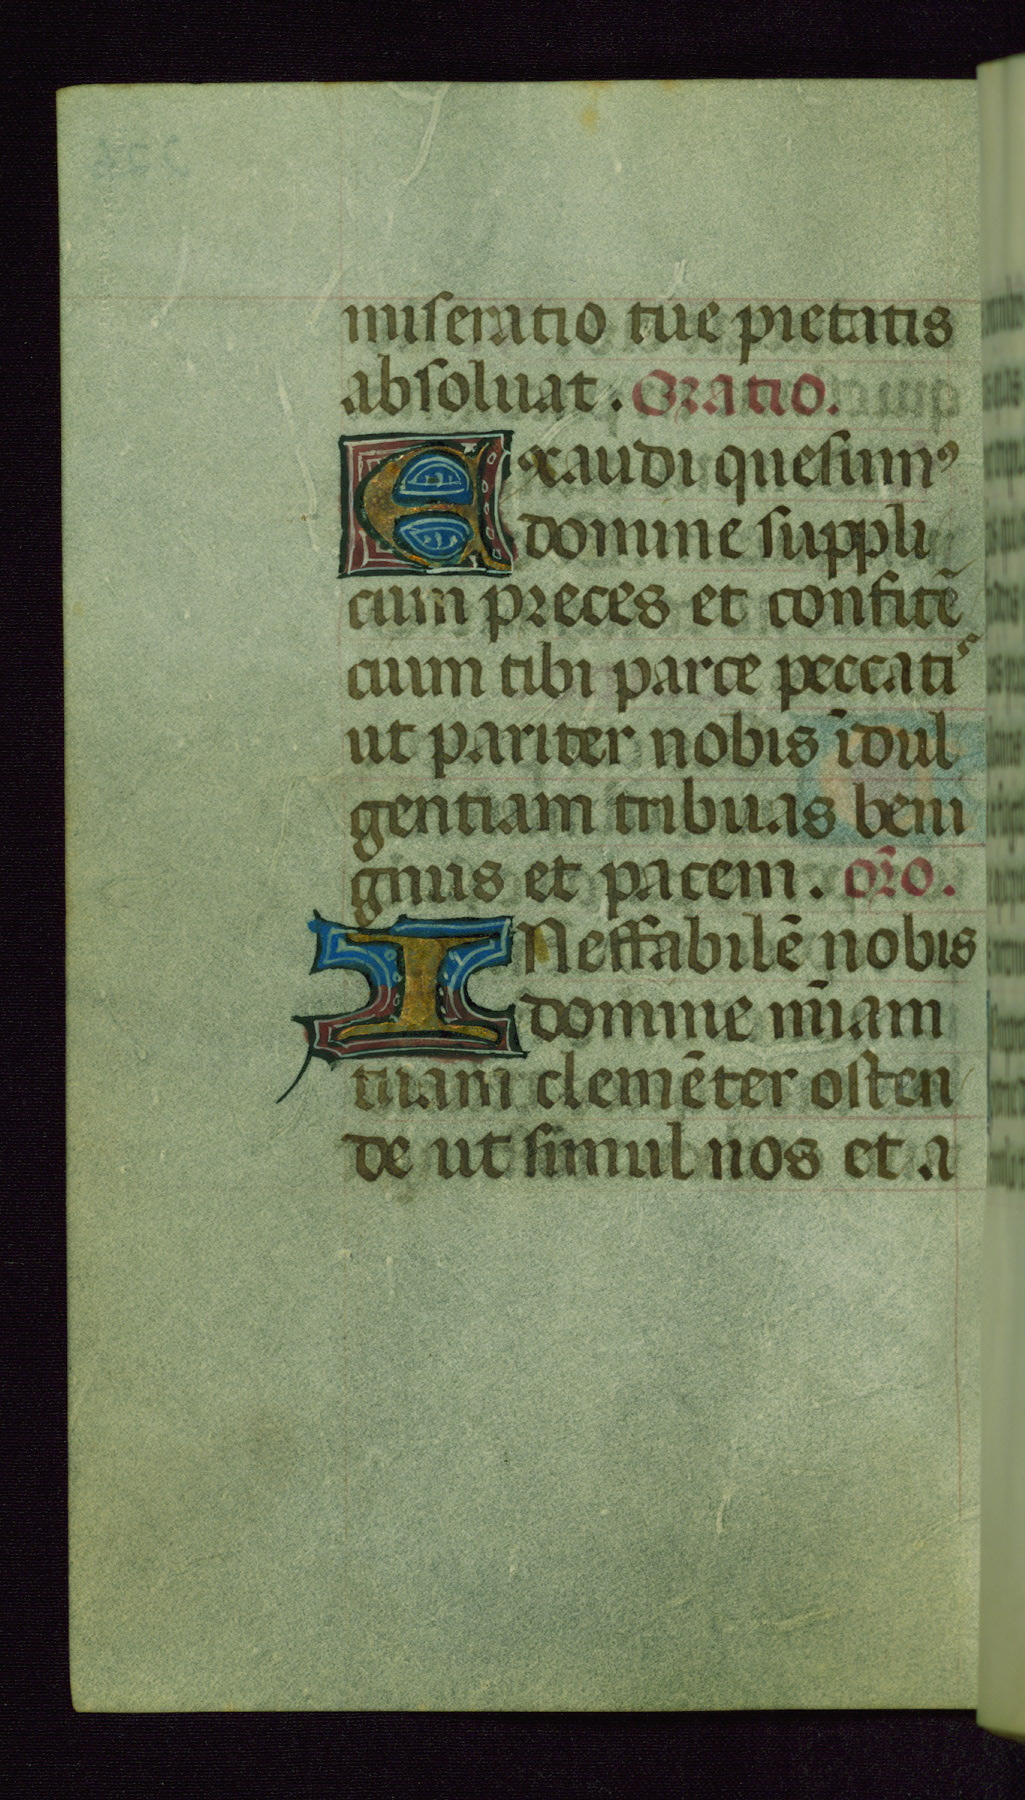 miseratio tue pietatis
absoluat. Oratio.
Exaudi quesumꝰ
domine suppli
cum preces et confitē
cium tibi parce peccatis
ut pariter nobis īdul
gentiam tribuas beni
gnus et pacem. oro̅.
INeffabilē nobis
domine mīam
tuam clemēter osten
de ut simul nos et a